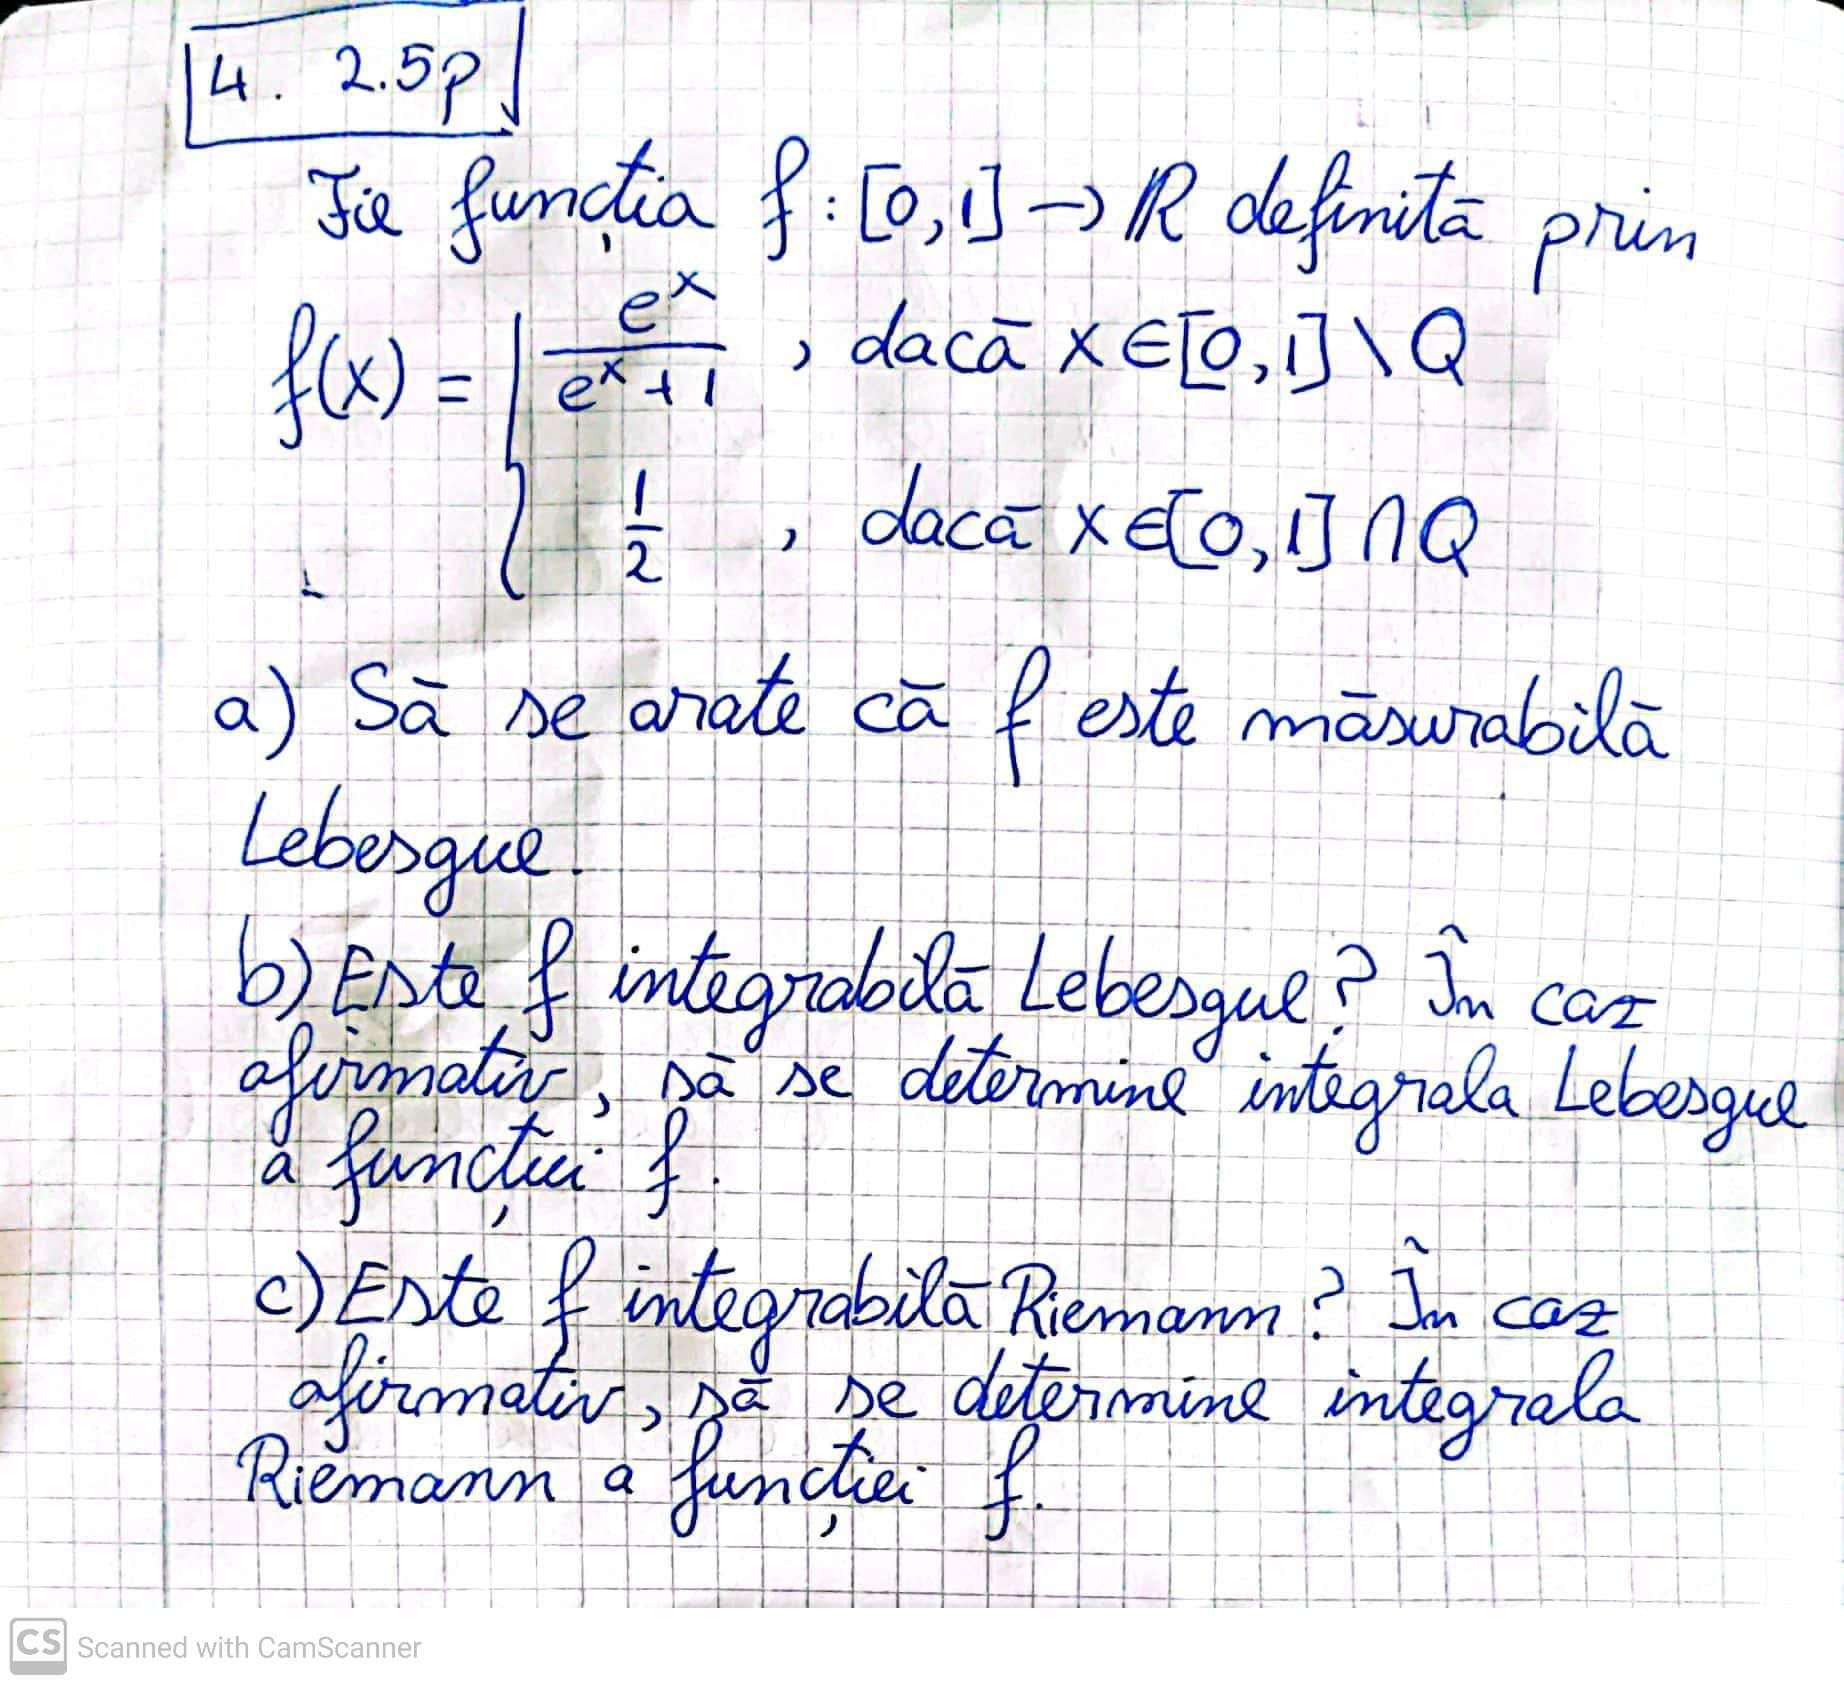 4. 2.5p
Fie funcția f : [0,1] → ℝ definită prin
f(x) = { e^x / (e^x + 1) , dacă x ∈ [0,1] \ Q
1/2 , dacă x ∈ [0,1] ∩ Q
a) Să se arate că f este măsurabilă
Lebesgue.
b) Este f integrabilă Lebesgue? În caz
afirmativ, să se determine integrala Lebesgue
a funcției f.
c) Este f integrabilă Riemann? În caz
afirmativ, să se determine integrala
Riemann a funcției f.
CS Scanned with CamScanner